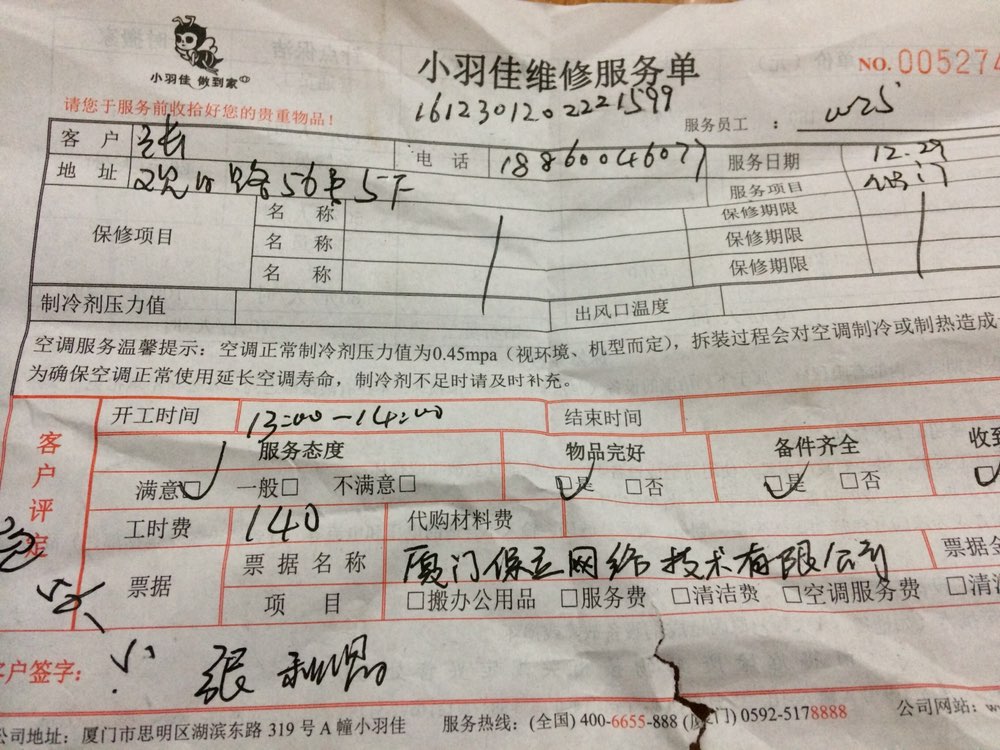 小羽佳 做到家
小羽佳维修服务单
NO. 005274
1612301202221599
请您于服务前收拾好您的贵重物品！
服务员工 ： W25
客 户 张 电 话 18860046077 服务日期 12.29
地 址 路56 服务项目
保修项目 名 称 保修期限
名 称 保修期限
名 称 保修期限
制冷剂压力值 出风口温度
空调服务温馨提示：空调正常制冷剂压力值为0.45mpa（视环境、机型而定），拆装过程会对空调制冷或制热造成
为确保空调正常使用延长空调寿命，制冷剂不足时请及时补充。
客户评定
开工时间 13:00-14:00 结束时间
服务态度 物品完好 备件齐全 收到
满意□ 一般□ 不满意□ □是 □否 □是 □否 □
工时费 140 代购材料费
票据 票据名称 厦门保立网络技术有限公司 票据金
项 目 □搬办公用品 □服务费 □清洁费 □空调服务费 □清洁
客户签字： 张
公司地址：厦门市思明区湖滨东路 319 号 A 幢小羽佳 服务热线：(全国) 400-6655-888 (厦门) 0592-5178888 公司网站：w